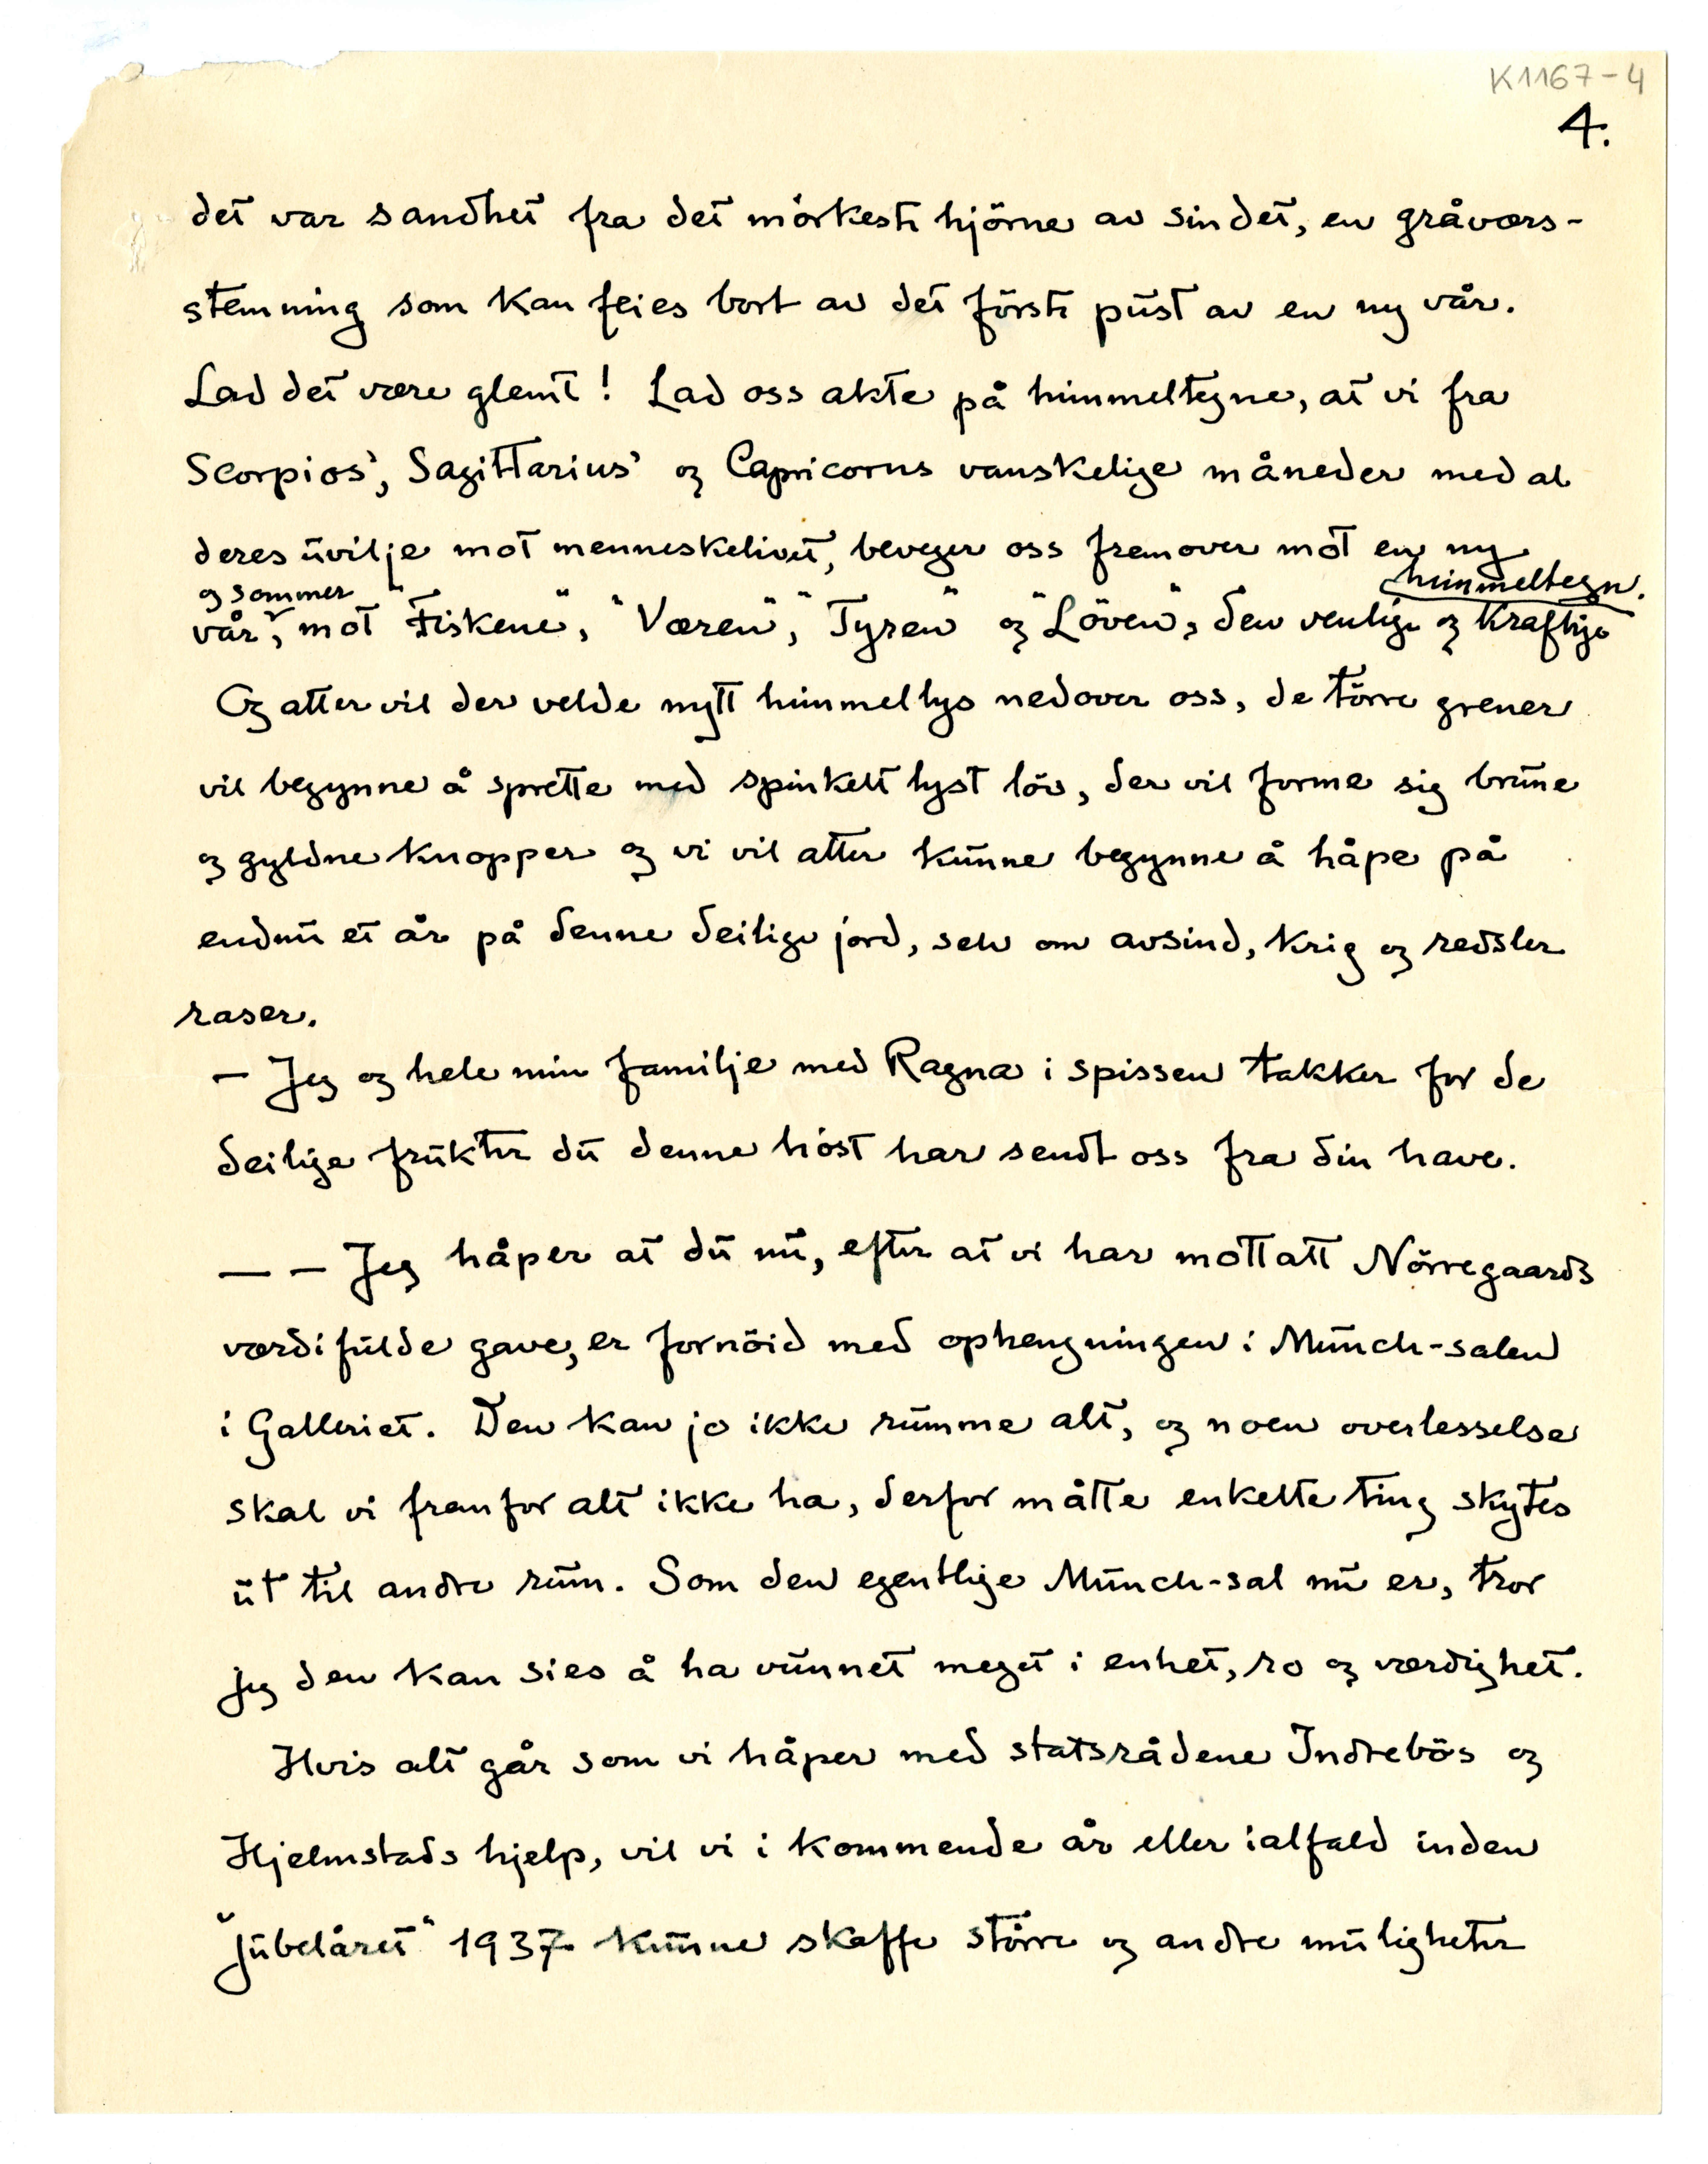 K1167-4
4.
det var sandhet fra det mörkeste hjörne av sindet, en gråværs-
stemning som kan feies bort av det förste pust av en ny vår.
Lad det være glemt! Lad oss akte på himmeltegne, at vi fra
Scorpios', Sagittarius' og Capricorns vanskelige måneder med al
deres uvilje mot menneskelivet, beveger oss fremover mot en ny
og sommer himmeltegn.
vår, mot "Fiskene", "Væren", "Tyren" og "Löven", den venlige og kraftige
Og atter vil der velde nytt himmellys nedover oss, de törre grener
vil begynne å sprette med spinkelt lyst löv, der vil forme sig brune
og gyldne knopper og vi vil atter kunne begynne å håpe på
endnu et år på denne deilige jord, selv om avsind, krig og redsler
raser.
— Jeg og hele min familje med Ragna i spissen takker for de
deilige frukter du denne höst har sendt oss fra din have.
— — Jeg håper at du nu, efter at vi har mottatt Nörregaards
værdifulde gave, er fornöid med ophengningen i Munch-salen
i Galleriet. Den kan jo ikke rumme alt, og noen overlesselse
skal vi fremfor alt ikke ha, derfor måtte enkelte ting skytes
ut til andre rum. Som den egentlige Munch-sal nu er, tror
jeg den kan sies å ha vunnet meget i enhet, ro og værdighet.
Hvis alt går som vi håper med statsrådene Indrebös og
Hjelmstads hjelp, vil vi i kommende år eller ialfald inden
"jubelåret" 1937 kunne skaffe större og andre muligheter